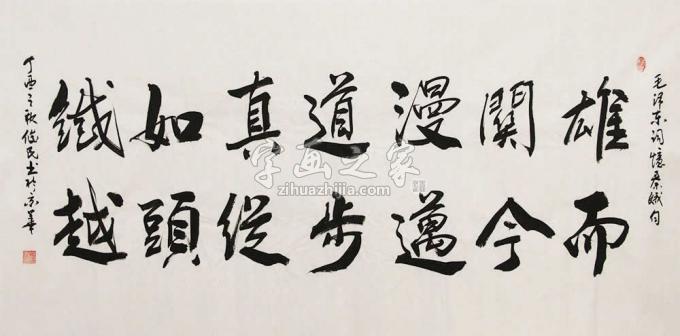 毛泽东词憶秦娥句
雄關漫道真如鐵
而今邁步從頭越
丁酉之秋民书於京華
字画之家
zihuazhijia.com